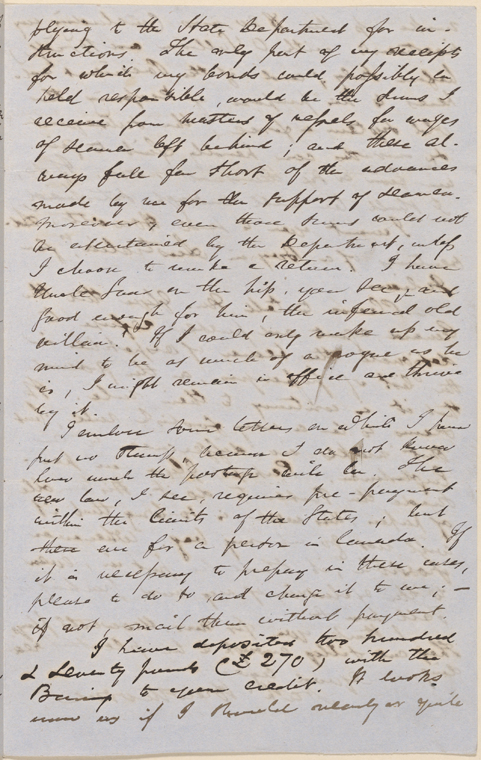 plying to the State Department for in-
structions. The only part of my receipts
for which my bonds could possibly be
held responsible, would be the sums I
receive from masters of vessels for wages
of seamen left behind; and these al-
ways fall far short of the advances
made by me for the support of seamen.
Moreover, even those sums could not
be ascertained by the Department, unless
I choose to make a return. I have
Uncle Sam on the hip, you see, and
good enough for him, the infernal old
villain! If I could only make up my
mind to be as much of a rogue as he
is, I might remain in office and thrive
by it.
I enclose some letters on which I have
put no stamps, because I do not know
how much the postage will be. The
new law, I see, requires pre-payment
within the limits of the States; but
these are for a person in Canada. If
it is necessary to prepay in these cases,
please to do so, and charge it to me; —
if not mail them without payment.
I have deposited two hundred
& seventy pounds (£270) with the
Barings to your credit. It looks
now as if I should nearly or quite